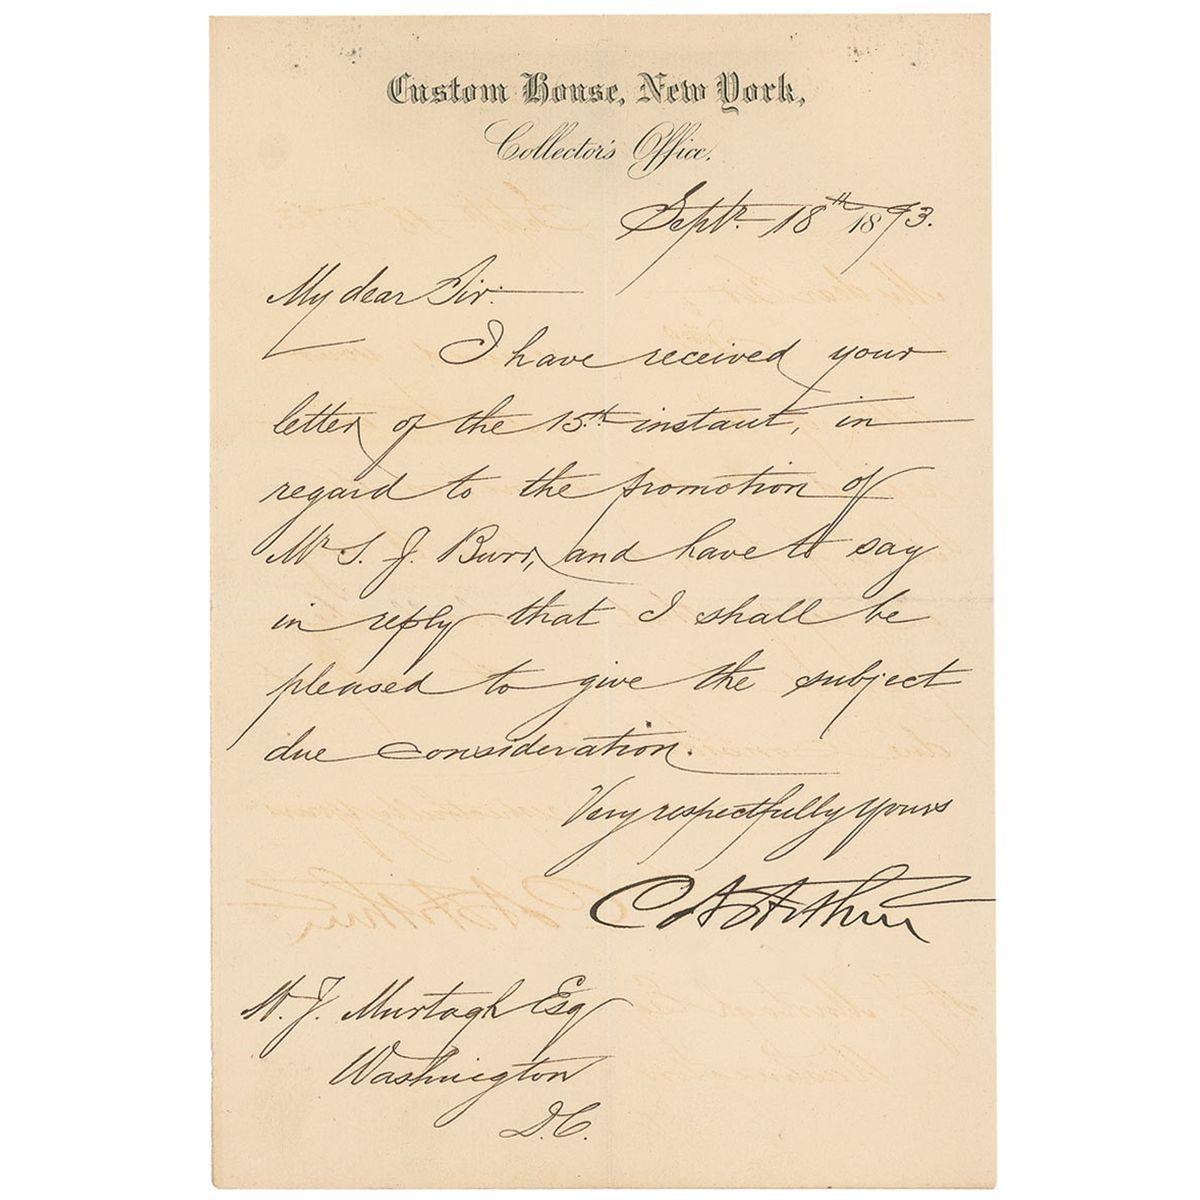 Custom House, New York,
Collector's Office,
Septr. 18th 1873.
My dear Sir:
I have received your
letter of the 15th instant, in
regard to the promotion of
Mr. S. J. Burr, and have to say
in reply that I shall be
pleased to give the subject
due consideration.
Very respectfully yours
C A Arthur
W. J. Murtagh Esq
Washington
D.C.